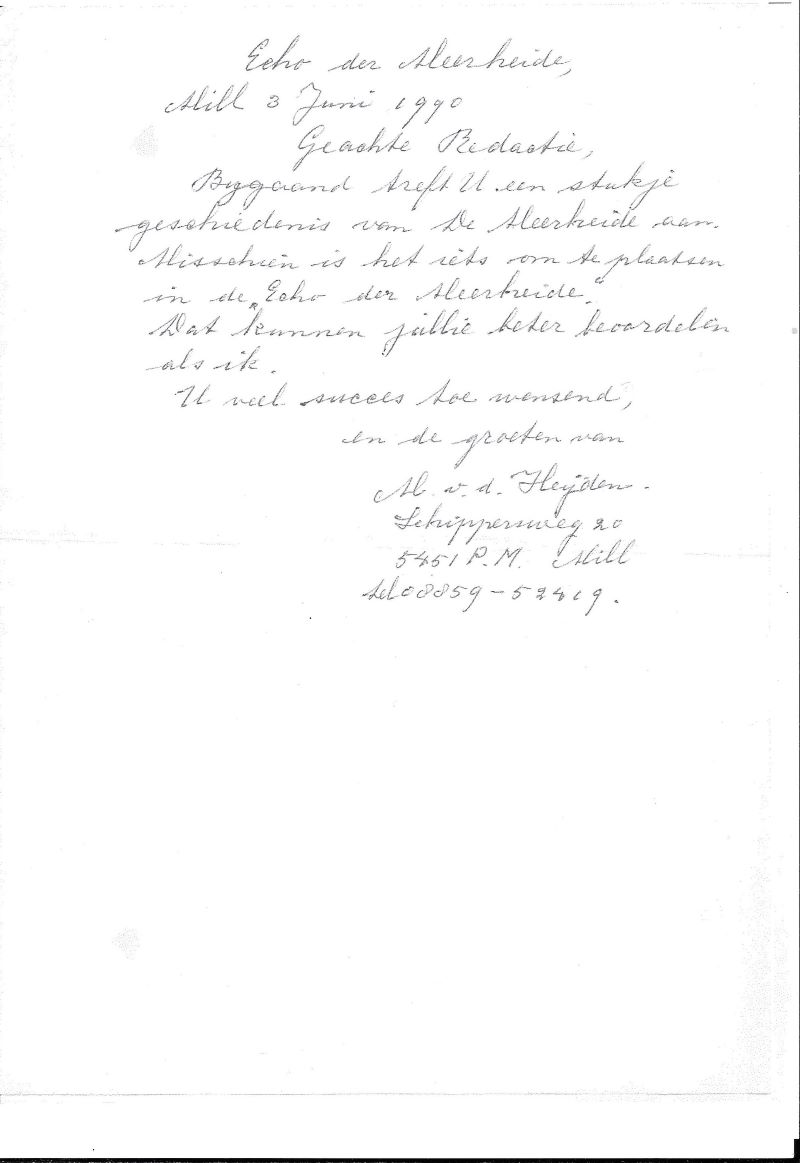 Echo der Meerheide,
Mill 3 Juni 1990
Geachte Redactie,
Bijgaand treft U een stukje
geschiedenis van De Meerheide aan.
Misschien is het iets om te plaatsen
in de „Echo der Meerheide."
Dat kunnen jullie beter beoordelen
als ik.
U veel succes toe wensend,
en de groeten van
M. v. d. Heyden.
Schippersweg 20
5451 P.M. Mill
tel 08859-52419.